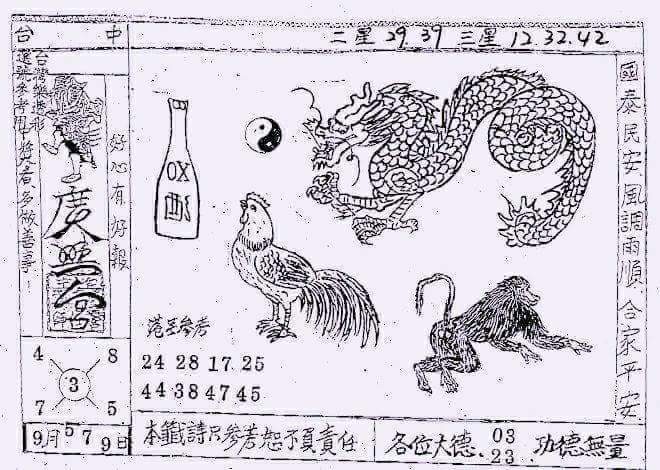 台中
二星 29.39 三星 12.32.42
台灣樂透彩
選號參考用
獎意多做善事!
好心有好報
國泰民安風調雨順 合家平安
OX
港호參考
24 28 17 25
44 38 47 45
4 8
3
7 5
9月5 7 9日
本籤詩只參考恕不負責任
各位大德.
03
23
功德無量